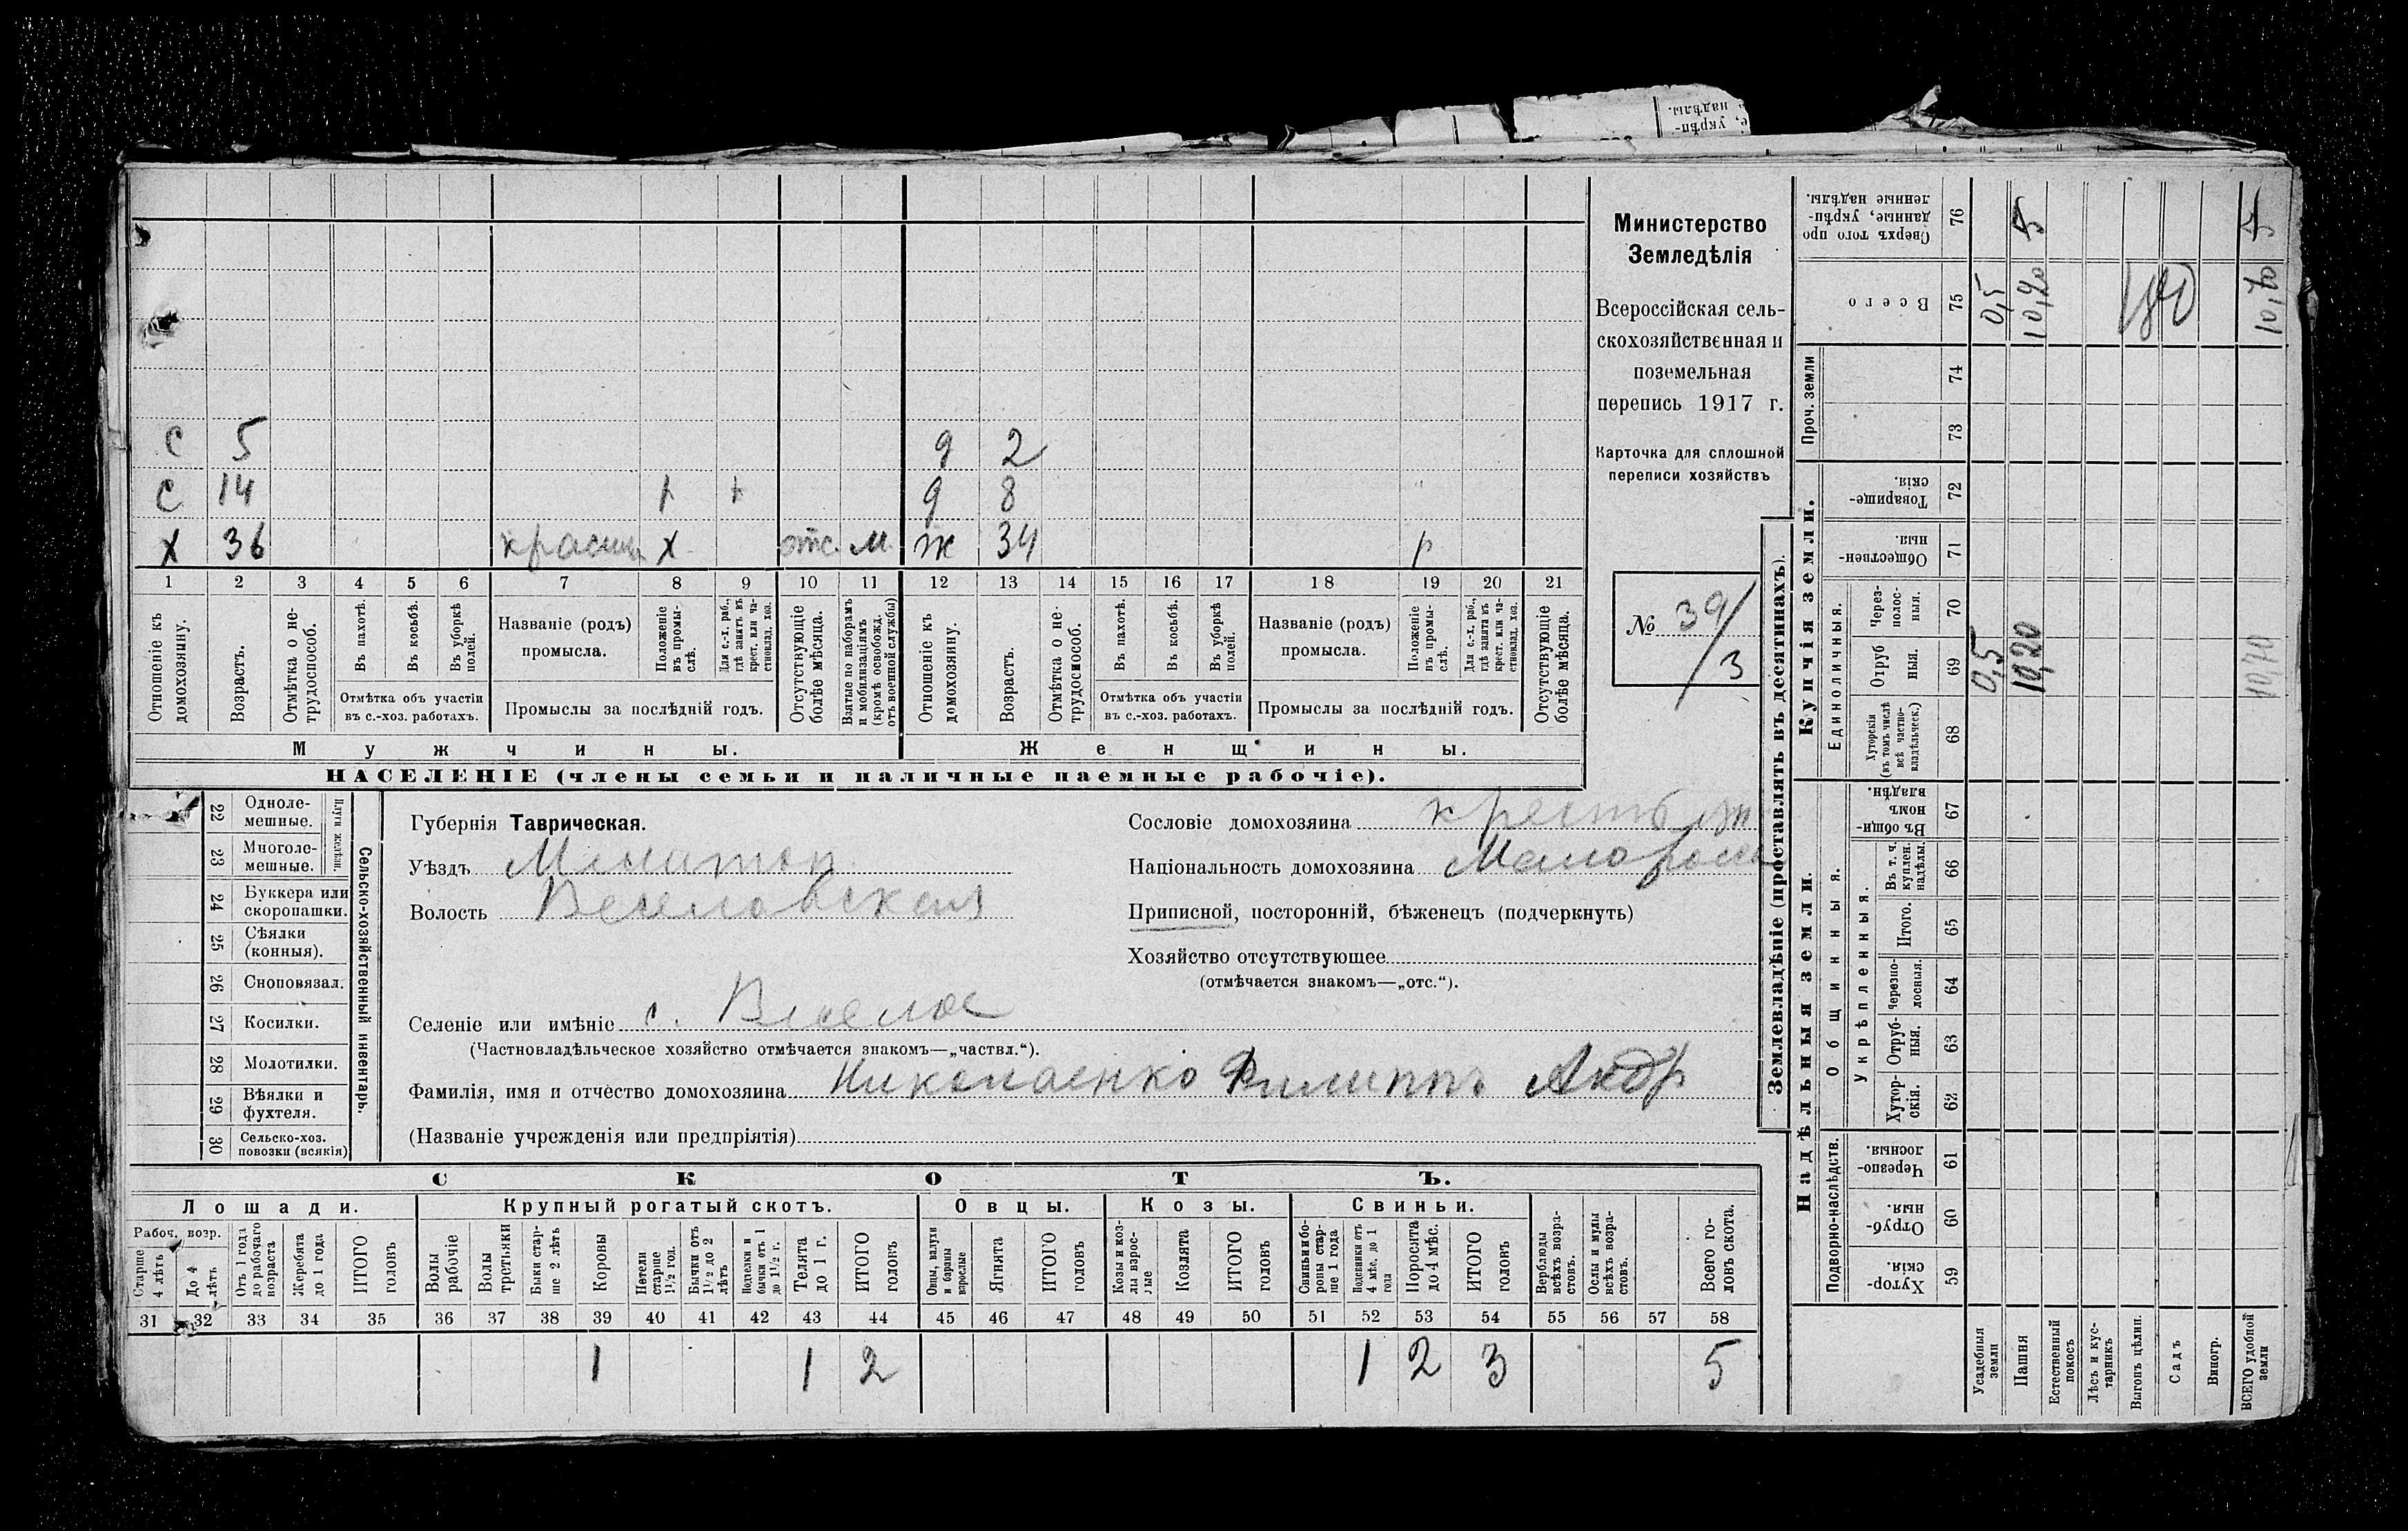 е, укрѣп-
надѣлы.
с 5 д 2
с 14 р + д 8
х 36 х отс. м. ж 34 р
1 2 3 4 5 6 7 8 9 10 11 12 13 14 15 16 17 18 19 20 21
Отношеніе къ домохозяину.
Возрастъ.
Отмѣтка о не-трудоспособ.
Въ пахотѣ.
Въ косьбѣ.
Въ уборкѣ полей.
Отмѣтка объ участіи
въ с.-хоз. работахъ.
Названіе (родъ)
промысла.
Положеніе въ промы-слѣ.
Для с.-х. раб., гдѣ занятъ въ крест. или ча-стновлад. хоз.
Промыслы за послѣдній годъ.
Отсутствующіе болѣе мѣсяца.
Взятые по наборамъ и мобилизаціямъ (кромѣ освобожд. отъ военной службы)
Отношеніе къ домохозяину.
Возрастъ.
Отмѣтка о не-трудоспособ.
Въ пахотѣ.
Въ косьбѣ.
Въ уборкѣ полей.
Отмѣтка объ участіи
въ с.-хоз. работахъ.
Названіе (родъ)
промысла.
Положеніе въ промы-слѣ.
Для с.-х. раб., гдѣ занята въ крест. или ча-стновлад. хоз.
Промыслы за послѣдній годъ.
Отсутствующіе болѣе мѣсяца.
Мужчины. Женщины.
НАСЕЛЕНІЕ (члены семьи и наличные наемные рабочіе).
Министерство
Земледѣлія
Всероссійская сель-
скохозяйственная и
поземельная
перепись 1917 г.
Карточка для сплошной
переписи хозяйствъ
№ 39/3
22 Одноле-мешные.
23 Многоле-мешные.
Плуги желѣзн.
24 Буккера или скоропашки.
25 Сѣялки (конныя).
26 Сноповязал.
27 Косилки.
28 Молотилки.
29 Вѣялки и фухтеля.
30 Сельско-хоз. повозки (всякія)
Сельско-хозяйственный инвентарь.
Губернія Таврическая.
Уѣздъ Мелитоп
Волость Веселовская
Селеніе или имѣніе с. Веселое
(Частновладѣльческое хозяйство отмѣчается знакомъ—„частвл.“).
Фамилія, имя и отчество домохозяина Николаенко Филиппъ Андр
(Названіе учрежденія или предпріятія)
Сословіе домохозяина
Національность домохозяина Малоросс
Приписной, посторонній, бѣженецъ (подчеркнуть)
Хозяйство отсутствующее
(отмѣчается знакомъ—„отс.“).
СКОТЪ.
Лошади. Крупный рогатый скотъ. Овцы. Козы. Свиньи.
Рабоч. возр.
Старше 4 лѣтъ
До 4 лѣтъ
Отъ 1 года до рабочаго возраста
Жеребята до 1 года
ИТОГО головъ
Волы рабочіе
Волы третьяки
Быки стар-ше 2 лѣтъ
Коровы
Нетели старше 1½ год.
Бычки отъ 1½ до 2 лѣтъ
Подтелки и бычки отъ 1 до 1½ г.
Телята до 1 г.
ИТОГО головъ
Овцы, валухи и бараны взрослые
Ягнята
ИТОГО головъ
Козы и коз-лы взрос-лые
Козлята
ИТОГО головъ
Свиньи и бо-ровы стар-ше 1 года
Подсвинки отъ 4 мѣс. до 1 года
Поросята до 4 мѣс.
ИТОГО головъ
Верблюды всѣхъ возра-стовъ.
Ослы и мулы всѣхъ возра-стовъ.
Всего го-ловъ скота.
31 32 33 34 35 36 37 38 39 40 41 42 43 44 45 46 47 48 49 50 51 52 53 54 55 56 57 58
1 1 2 1 2 3 5
Землевладѣніе (проставлять въ десятинахъ).
Надѣльныя земли.
Купчія земли.
Проч. земли
Подворно-наслѣдств.
Общинныя.
Укрѣпленныя.
Единоличныя.
Хутор-скія. 59
Отруб-ныя. 60
Черезпо-лосныя. 61
Хутор-скія. 62
Отруб-ныя. 63
Черезпо-лосныя. 64
Итого. 65
Въ т. ч. куплен. надѣлы. 66
Въ общи-номъ владѣн. 67
Хуторскія (въ томъ числѣ всѣ частно-владѣльческ.) 68
Отруб ныя. 69
Через-полос-ныя. 70
Обществен-ныя. 71
Товарище-скія. 72
73
74
Всего 75
Сверхъ того про данные, укрѣп-ленные надѣлы. 76
Усадебныя земли 0,5 0,5
Пашня 10,20 10,20 5
Естественный покосъ
Лѣсъ и кус-тарникъ
Выгонъ цѣлин.
Садъ
Виногр.
ВСЕГО удобной земли 10,70 10,70 5